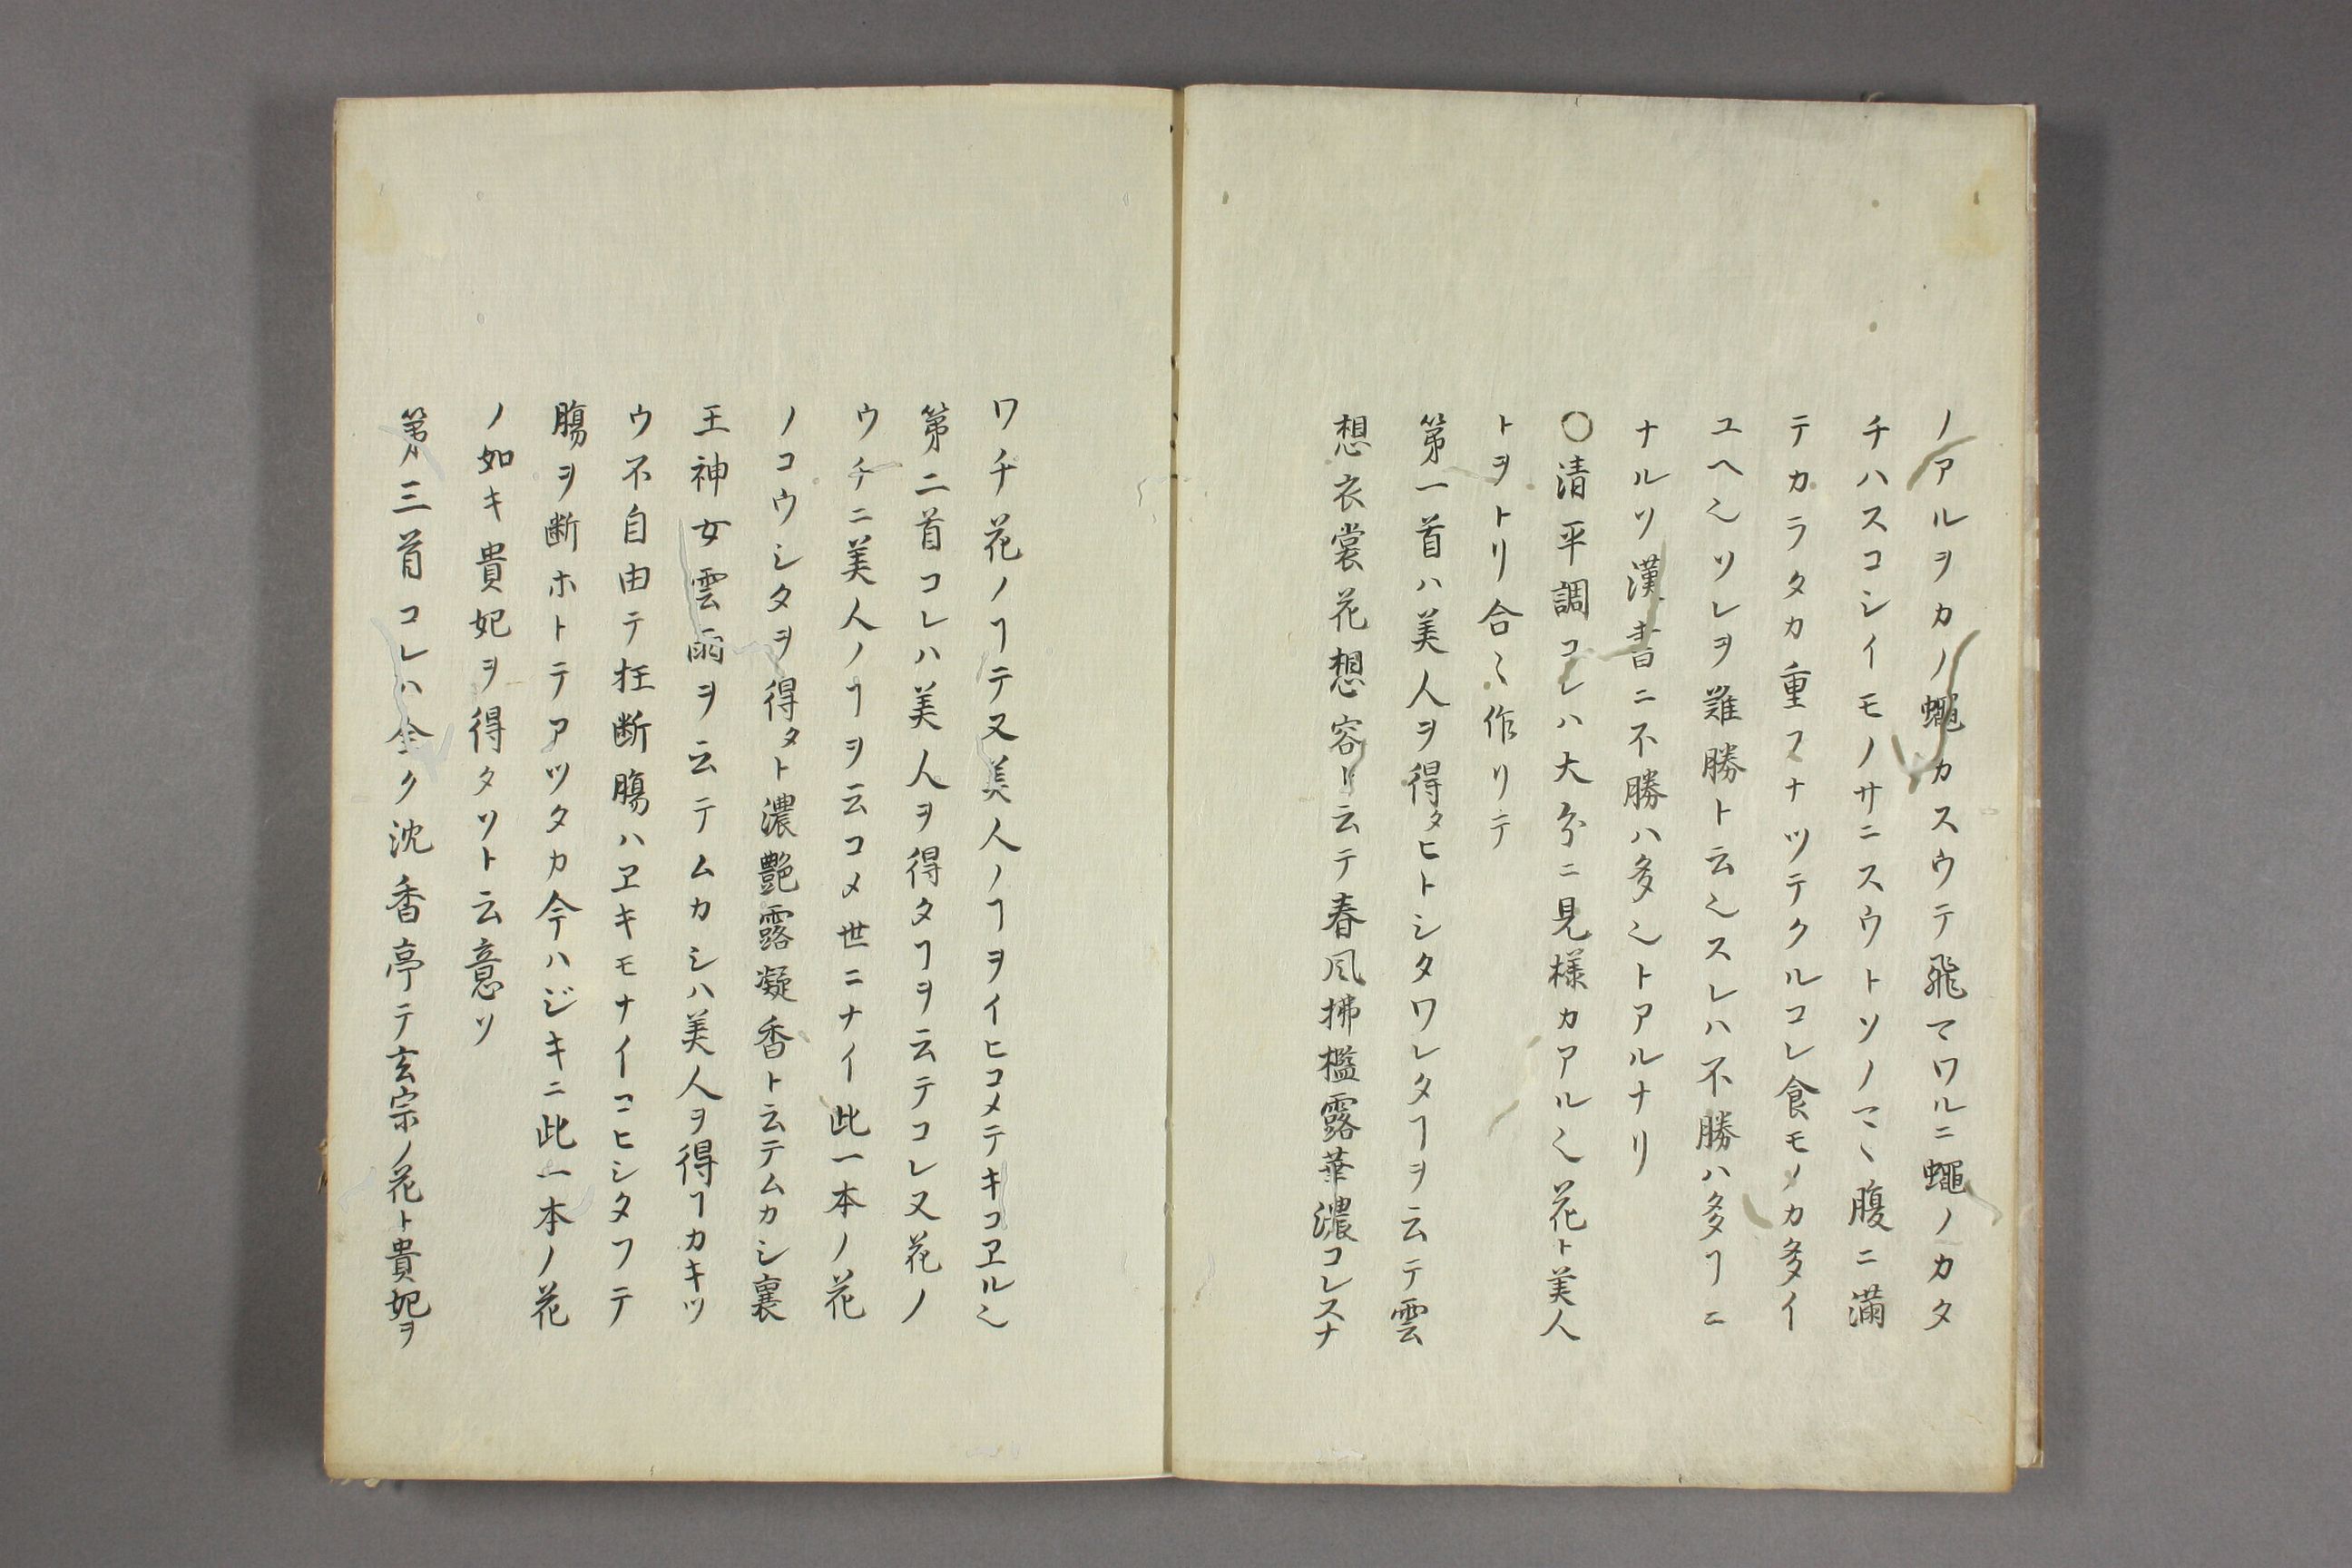 ノアルヲカノ蠅カスウテ飛マワルニ蠅ノカタ
チハスコシイモノサニスウトソノマヽ腹ニ満
テカラタカ重フナツテクルコレ食モノカ多イ
ユヘ乄ソレヲ難勝ト云乄スレハ不勝ハ多ヿニ
ナルソ漢書ニ不勝ハ多乄トアルナリ
〇清平調コレハ大分ニ見様カアル乄花ト美人
トヲトリ合ミ作リテ
第一首ハ美人ヲ得タヒトシタワレタヿヲ云テ雲
想衣裳花想容ト云テ春風拂檻露華濃コレスナ
ワチ花ノヿテ又美人ノヿヲイヒコメテキコヱル乄
第二首コレハ美人ヲ得タヿヲ云テコレ又花ノ
ウチニ美人ノヿヲ云コメ世ニナイ此一本ノ花
ノコウシタヲ得タト濃艶露凝香ト云テムカシ襄
王神女雲雨ヲ云テムカシハ美人ヲ得ヿカキツ
ウ不自由テ枉断腸ハヱキモナイコヒシタフテ
腸ヲ断ホトテアツタカ今ハジキニ此一本ノ花
ノ如キ貴妃ヲ得タソト云意ソ
第三首コレハ全ク沈香亭テ玄宗ノ花ト貴妃ヲ